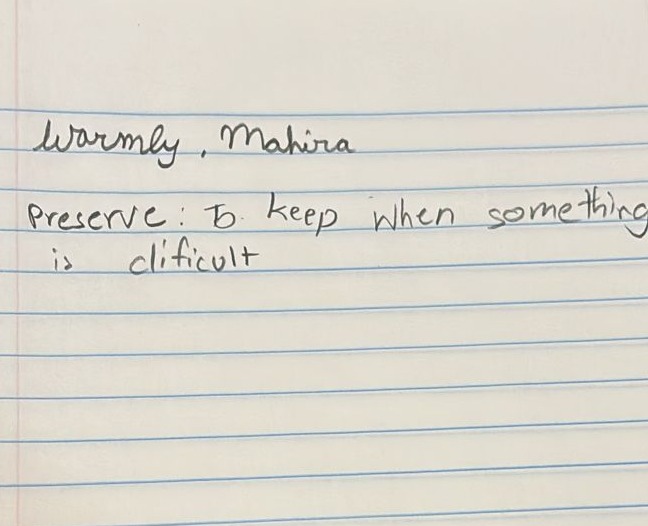 Warmly, Mahira
Preserve: To keep when something
is dificult